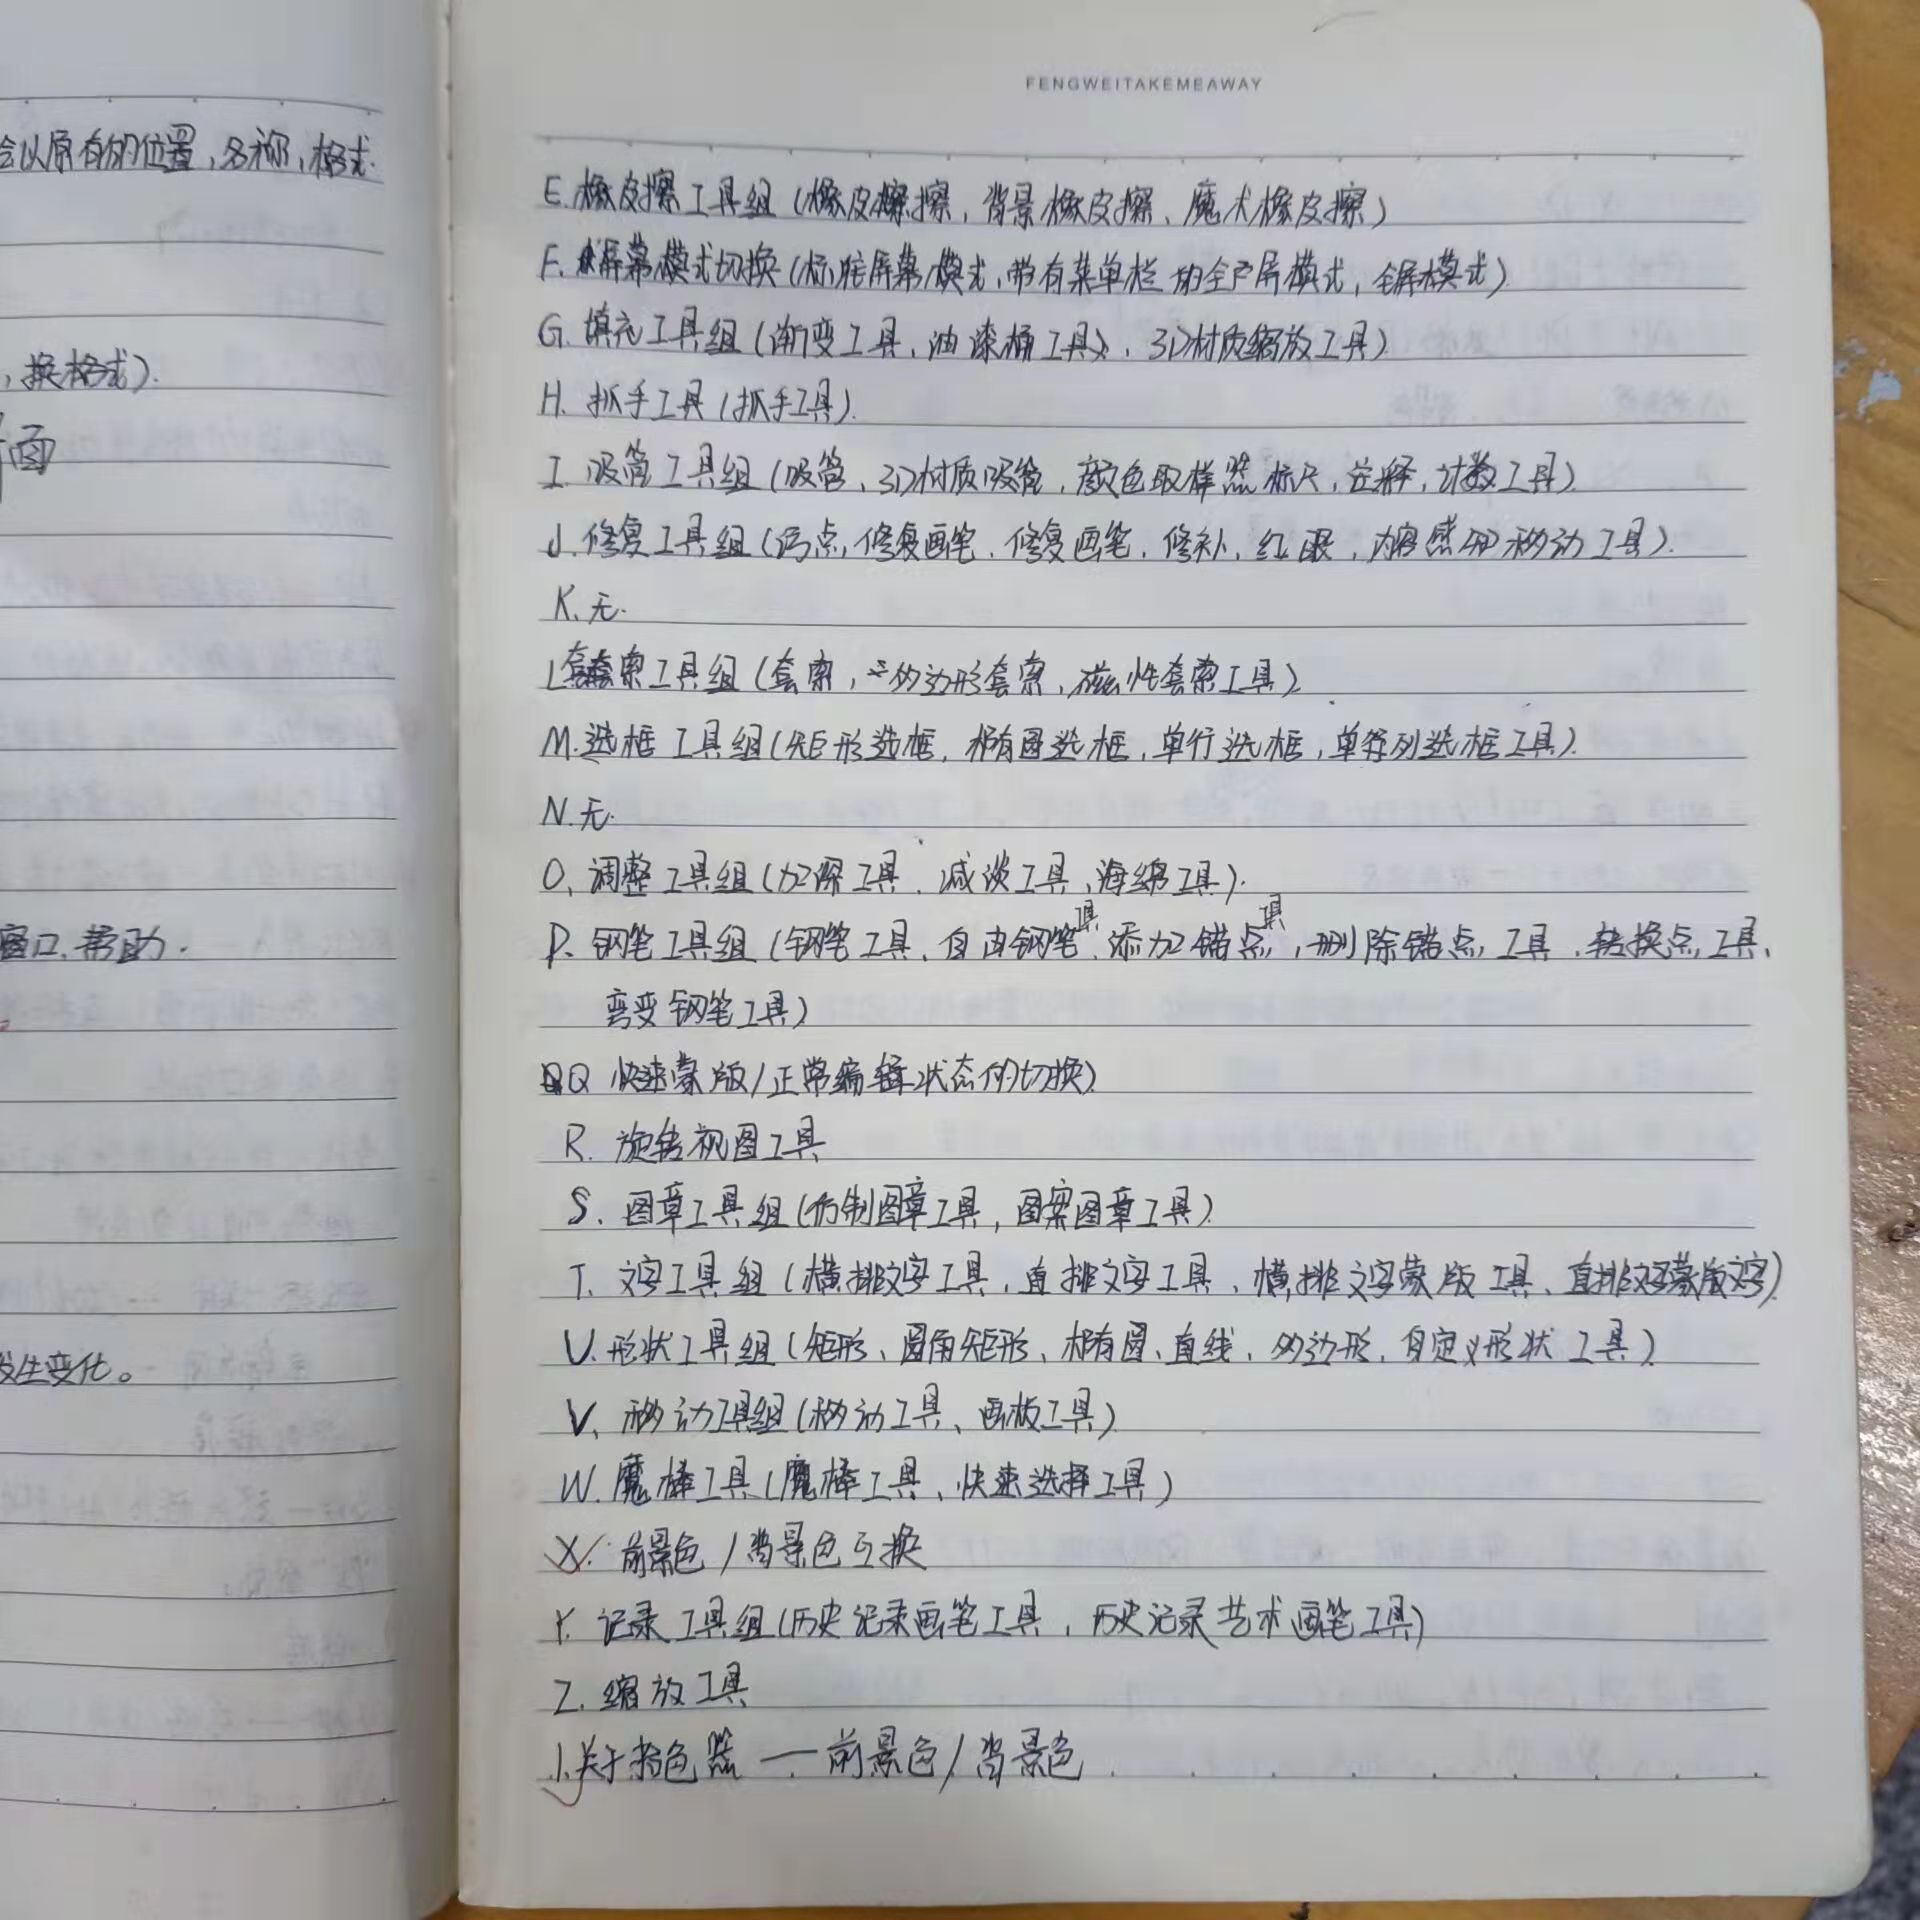 会以原有的位置,名称,格式.
,换格式).
面
窗口、帮助.
发生变化。
FENGWEITAKEMEAWAY
E.橡皮擦工具组(橡皮擦,背景橡皮擦、魔术橡皮擦)
F.屏幕模式切换(标准屏幕模式,带有菜单栏的全屏模式,全屏模式)
G.填充工具组(渐变工具、油漆桶工具、3D材质缩放工具)
H.抓手工具(抓手工具).
I.吸管工具组(吸管、3D材质吸管,颜色取样器标尺,注释,计数工具).
J.修复工具组(污点,修复画笔、修复画笔,修补,红眼,内容感知移动工具).
K.无.
L套索工具组(套索,多边形套索,磁性套索工具)
M.选框工具组(矩形选框,椭圆选框,单行选框,单列选框工具).
N.无.
O、调整工具组(加深工具、减淡工具、海绵工具).
P.钢笔工具组(钢笔工具、自由钢笔工具、添加锚点工具,删除锚点,工具、转换点,工具、
弯变钢笔工具)
Q快速蒙版/正常编辑状态的切换)
R.旋转视图工具
S.图章工具组(仿制图章工具,图案图章工具)
T.文字工具组(横排文字工具、直排文字工具、横排文字蒙版工具、直排文字蒙版文字)
U.形状工具组(矩形、圆角矩形、椭圆、直线、多边形、自定义形状工具)
V、移动工具组(移动工具、画板工具)
W.魔棒工具(魔棒工具、快速选择工具)
X.前景色/背景色互换
Y.记录工具组(历史记录画笔工具,历史记录艺术画笔工具)
Z.缩放工具
1.关于拾色器——前景色/背景色